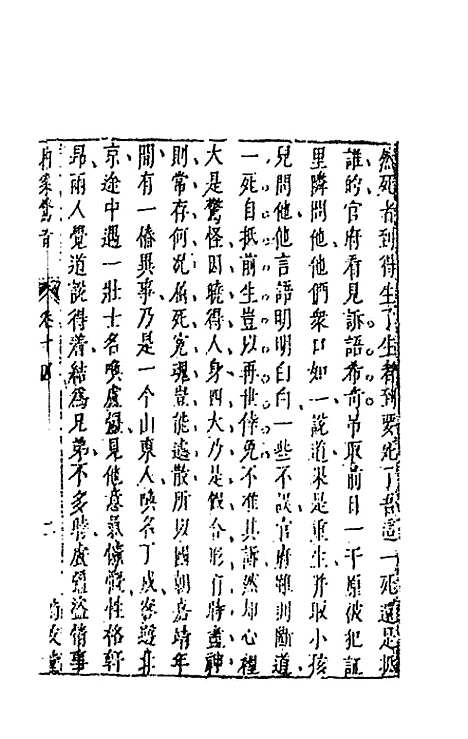 然死者到得生了生者到要死了吾這一死還是抵
誰的官府看見訴語希奇吊取前日一干原被犯証
里隣問他他們衆口如一說道果是重生并取小孩
兒問他他言語明明白白一些不誤官府雖則斷道
一死自抵前生豈以再世倖免不准其訴然却心裡
大是驚怪因曉得人身四大乃是假合形有時盡神
則常存何況屈死寃魂豈能遽散所以國朝嘉靖年
間有一樁異事乃是一个山東人喚名丁戍客遊北
京途中遇一壯士名喚盧疆見他意氣慷慨性格軒
昂兩人覺道說得着結為兄弟不多時盧疆盜情事
拍案驚奇 卷十四 二 尚友堂